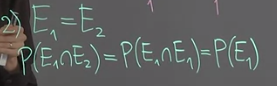 2) E₁ = E₂
P(E₁∩E₂) = P(E₁∩E₁) = P(E₁)